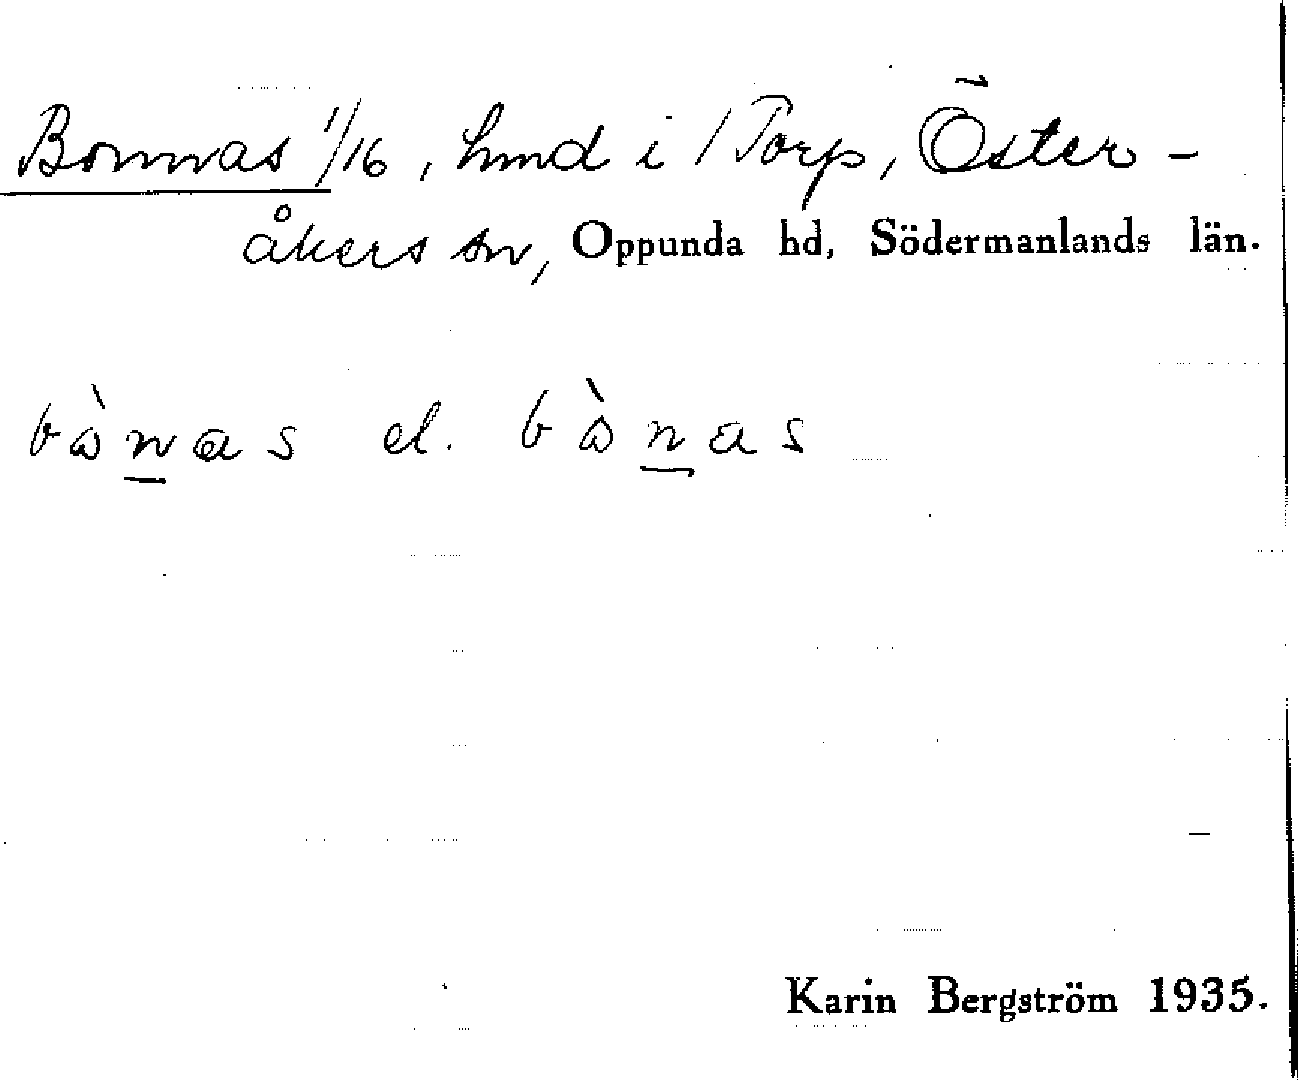 Bonnas 1/16, hmd i Torp, Öster-
åkers sn, Oppunda hd, Södermanlands län.
bònas el. bònas
Karin Bergström 1935.